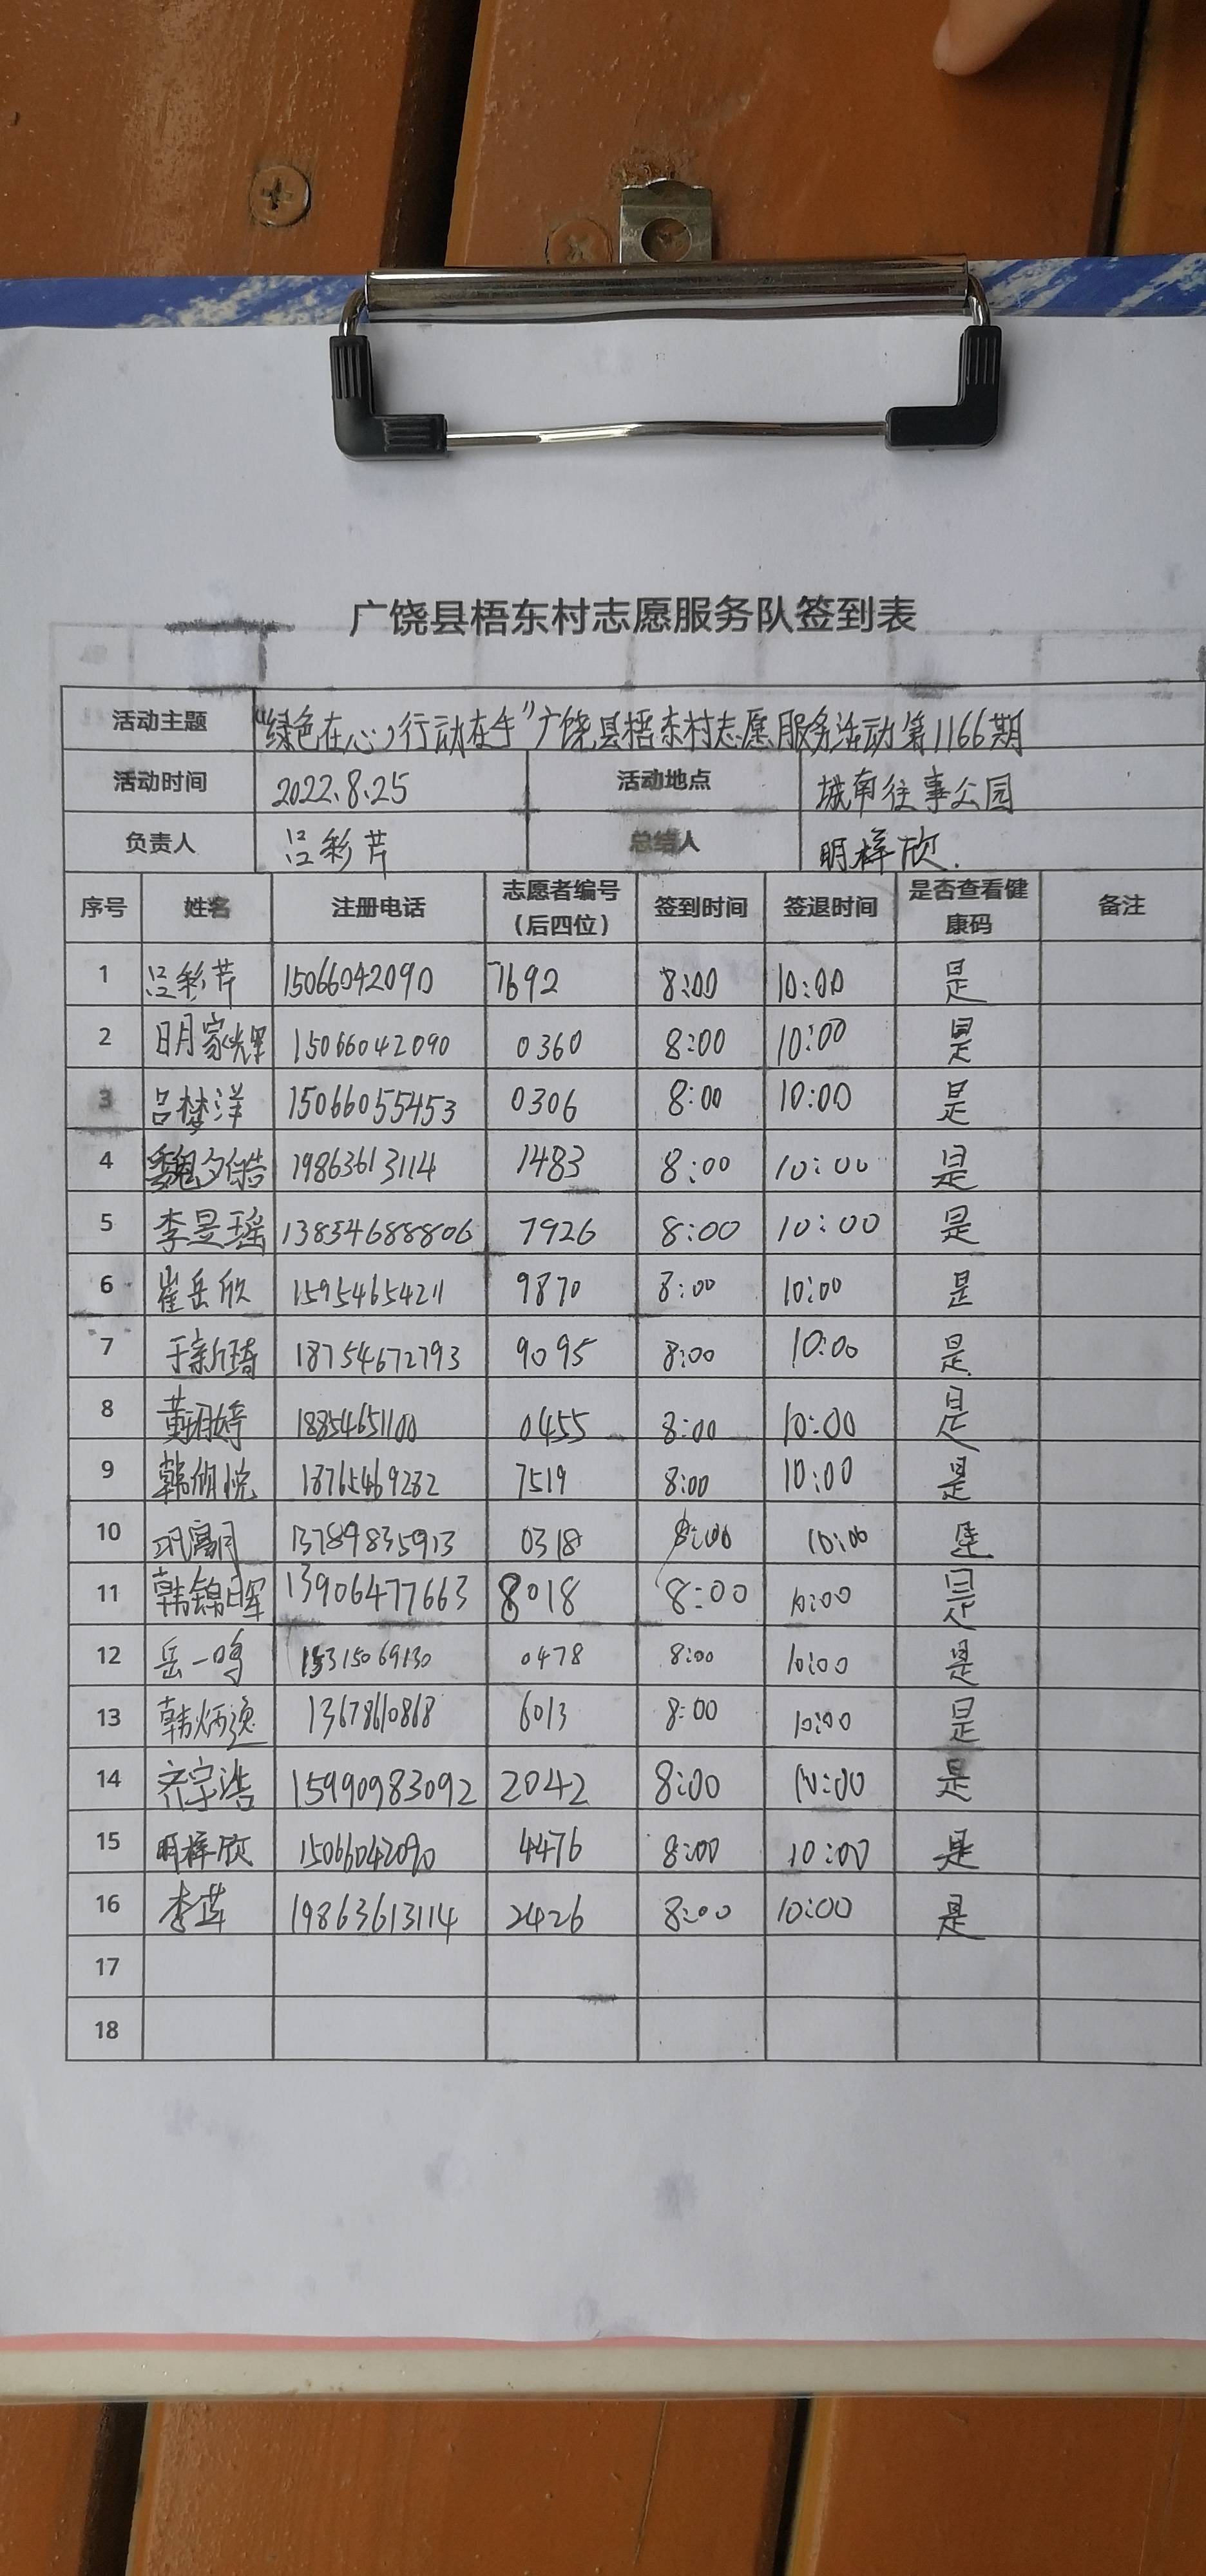 广饶县梧东村志愿服务队签到表
活动主题 “绿色在心，行动在手”广饶县梧东村志愿服务活动第1166期
活动时间 2022.8.25 活动地点 城南往事公园
负责人 吕彩芹 总结人 明梓欣.
序号 姓名 注册电话 志愿者编号（后四位） 签到时间 签退时间 是否查看健康码 备注
1 吕彩芹 15066042090 7692 8:00 10:00 是
2 明家辉 15066042090 0360 8:00 10:00 是
3 吕梦洋 15066055453 0306 8:00 10:00 是
4 魏夕皓 19863613114 1483 8:00 10:00 是
5 李昱瑶 13854688806 7926 8:00 10:00 是
6 崔岳欣 15954654211 9870 8:00 10:00 是
7 于新琦 18754672793 9095 8:00 10:00 是
8 18854651100 0455 8:00 10:00 是
9 韩悦 18765469282 7519 8:00 10:00 是
10 13789835913 0318 8:00 10:00 是
11 韩锦晖 13906477663 8018 8:00 10:00 是
12 岳一鸣 15315069130 0478 8:00 10:00 是
13 韩炳逸 13678610868 6013 8:00 10:00 是
14 齐宇浩 15990983092 2042 8:00 10:00 是
15 明梓欣 15066042090 4476 8:00 10:00 是
16 李莲 19863613114 2426 8:00 10:00 是
17
18